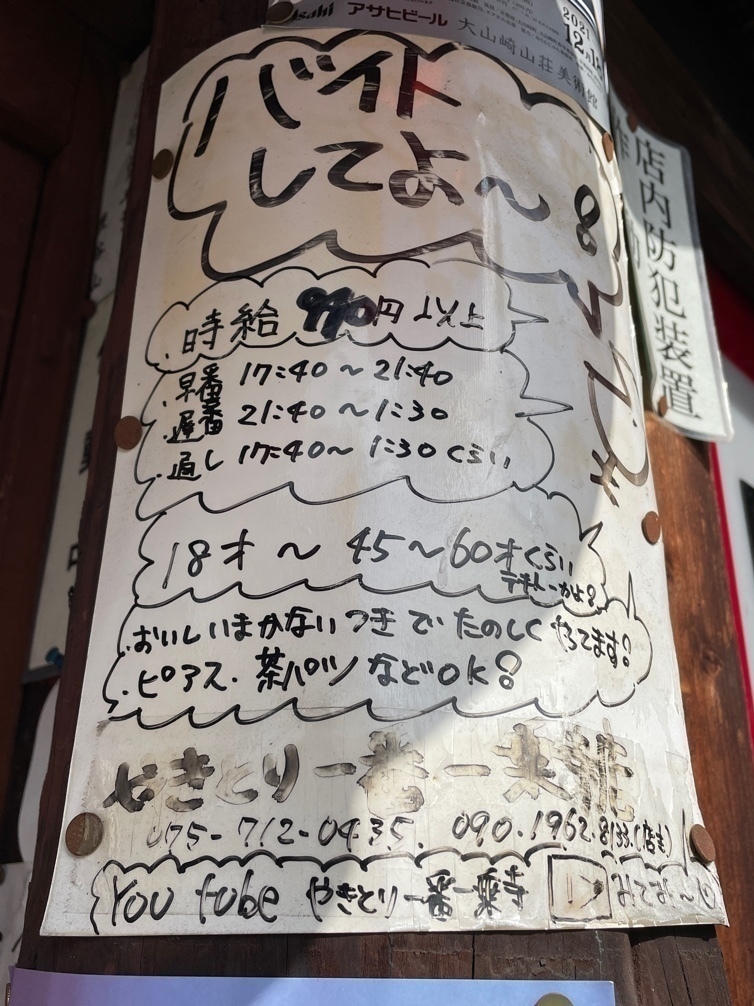 Asahi アサヒビール 大山崎山荘美術館
2021
店内防犯装置
作動
バイト
してよ〜!
時給 円以上
・早番 17:40〜21:40
・遅番 21:40〜1:30
・通し 17:40〜1:30くらい
18才〜45〜60才くらい
テキトーかよ!
・おいしいまかないつきでたのしくやってます!
・ピアス・茶パツなどOK!
やきとり一番一乗寺
075-712-0435. 090.1962.8133.(店主)
You tobe やきとり一番一乗寺 みてね〜